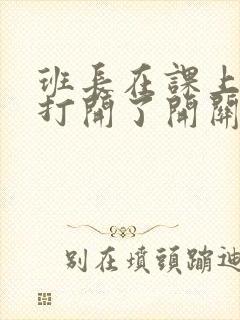 班長在課上
打開了開關
別在墳頭蹦迪